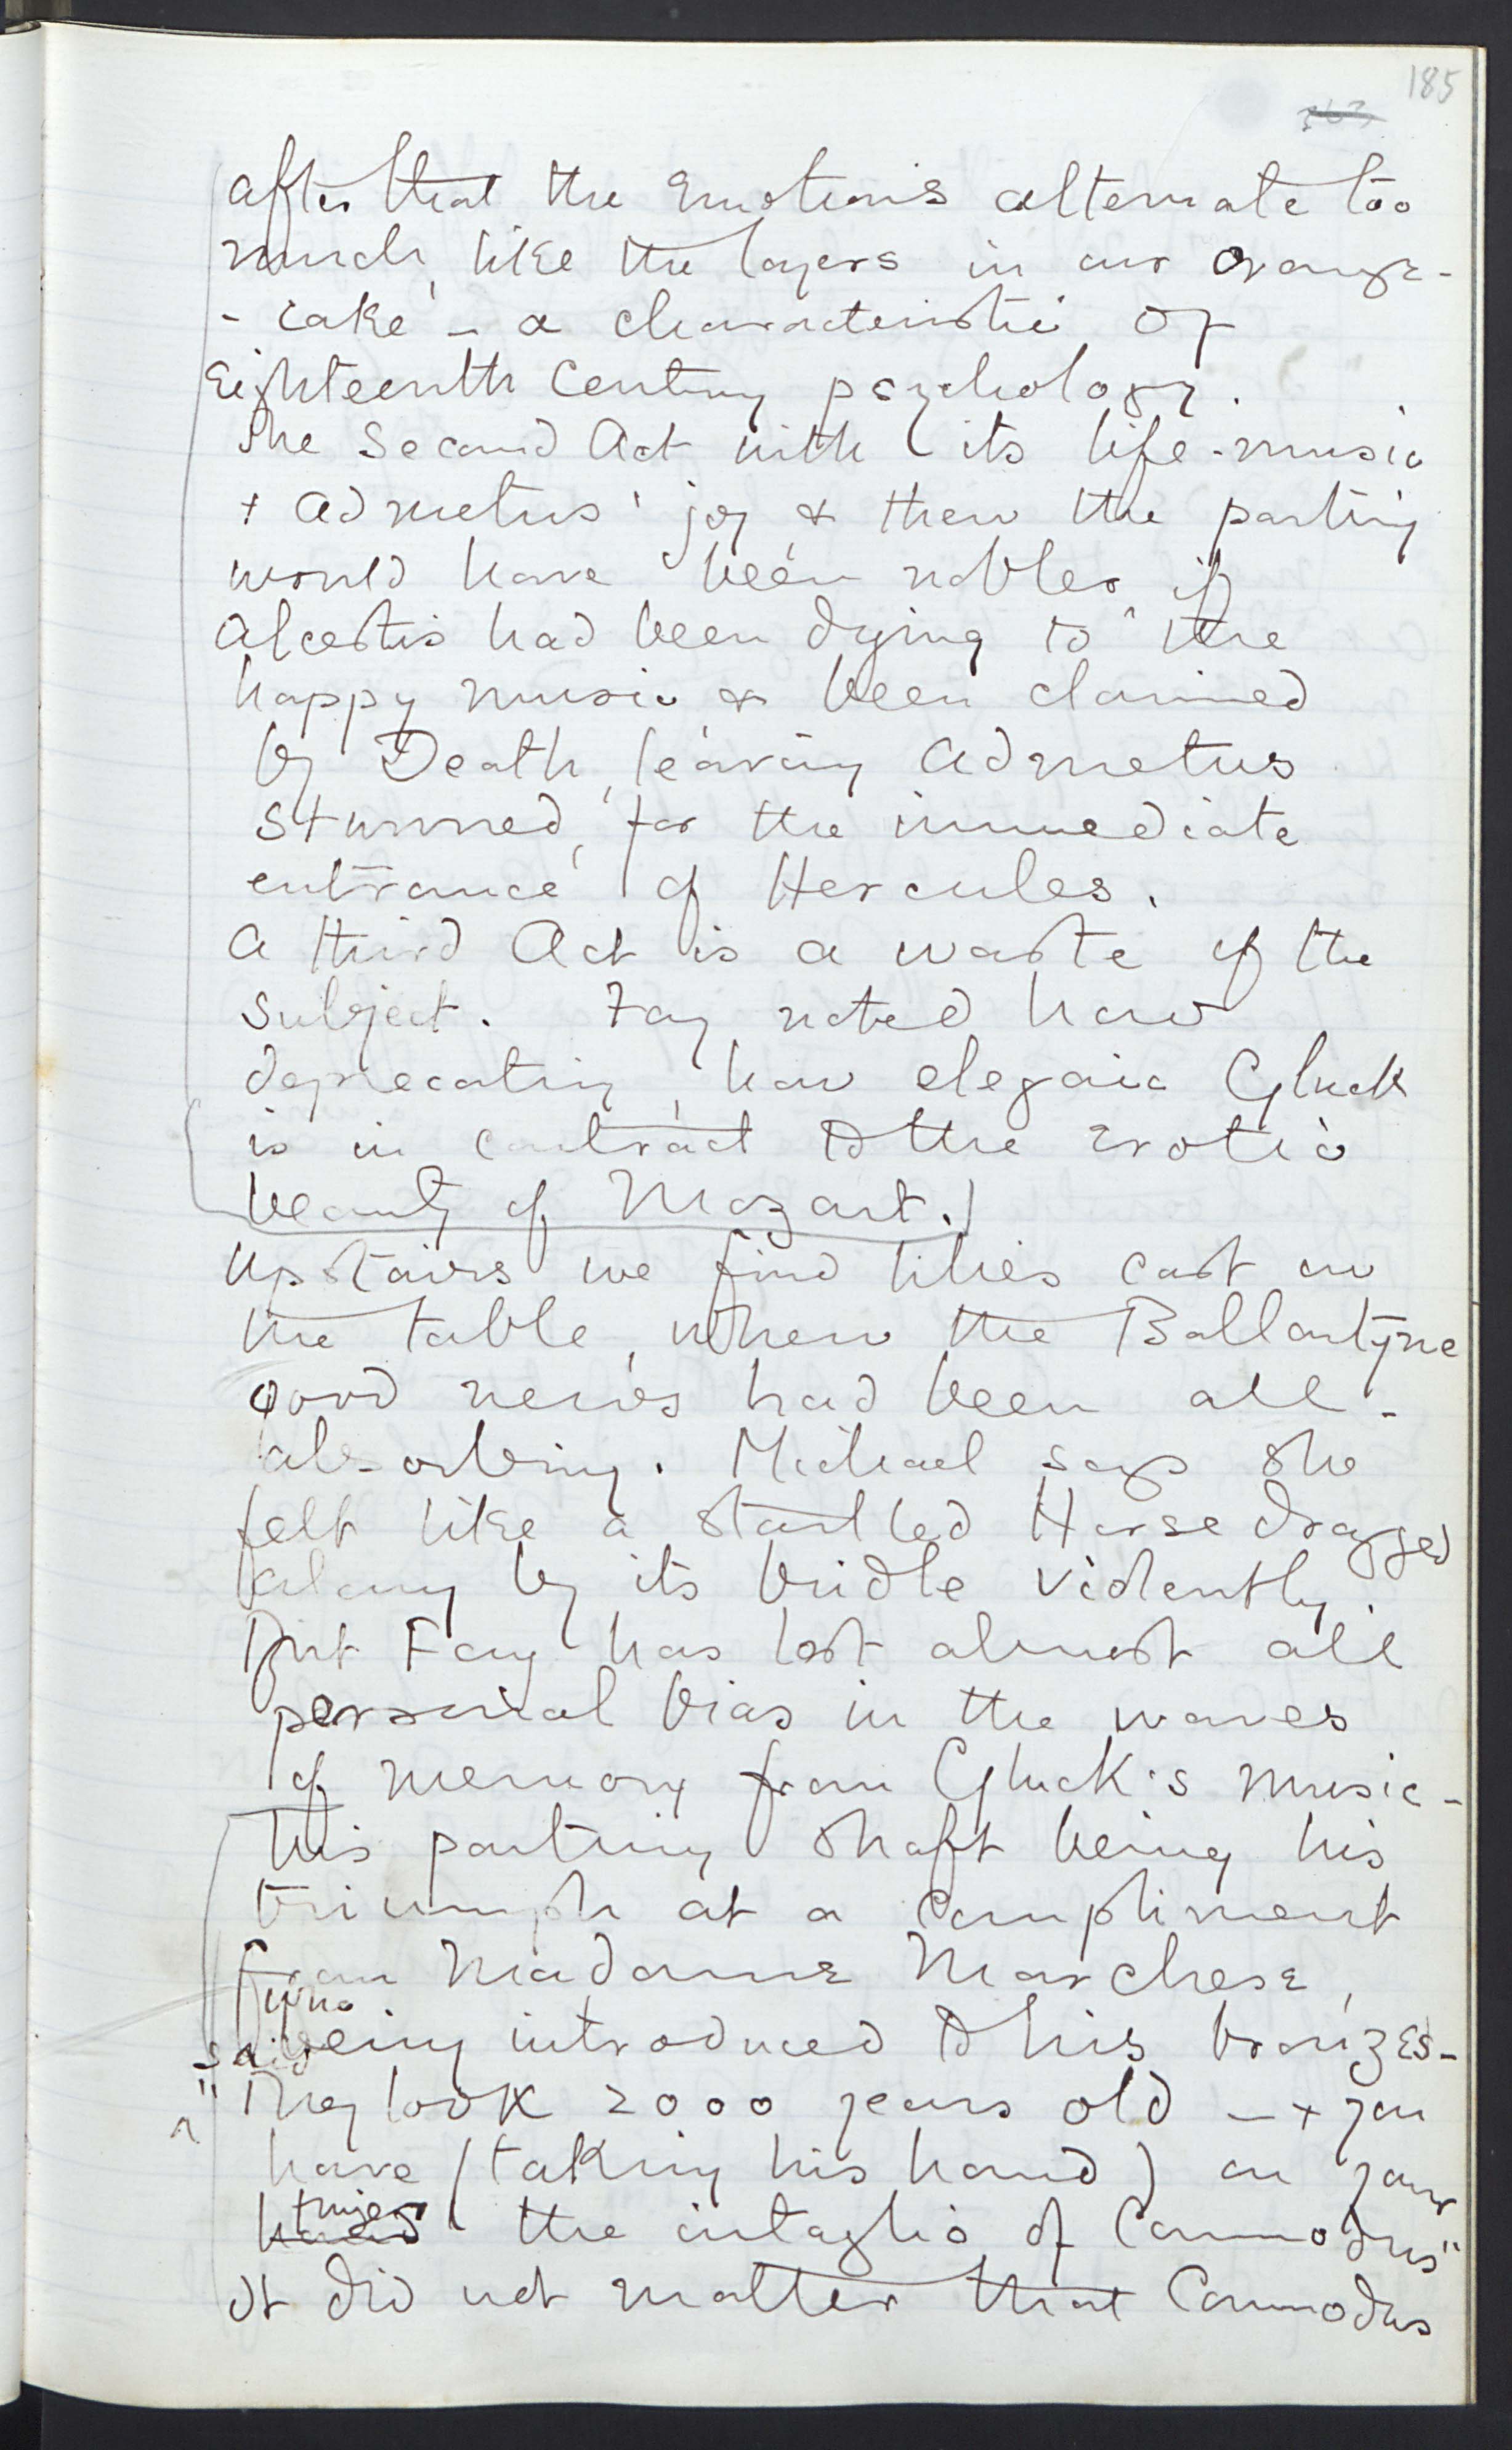 185
after that the Emotions alternate too
much, like the layers in our orange-
- cake - a characteristic of
Eighteenth Century psychology.
The Second Act with its life-music
+ Admetus' joy & then the parting
would have been nobler if
Alcestis had been dying to the
happy music & been claimed
by Death, leaving Admetus
stunned, for the immediate
entrance of Hercules.
A third Act is a waste of the
subject. Fay noted how
deprecating, how elegaic Gluck
is in contrast to the Erotic
beauty of Mozart.)
Upstairs we find lilies cast on
the table, when the Ballantyne
good news had been all-
absorbing. Michael says she
felt like a startled Horse dragged
along by its bridle violently.
But Fay has lost almost all
personal bias in the waves
of memory from Gluck's music-
His parting shaft being his
triumph at a compliment
from Madame Marchese,
who
said being introduced to his bronzes-
"They look 2000 years old - + you
have (taking his hand) on your
finger
hand the intaglio of Commodus"
It did not matter that Commodus